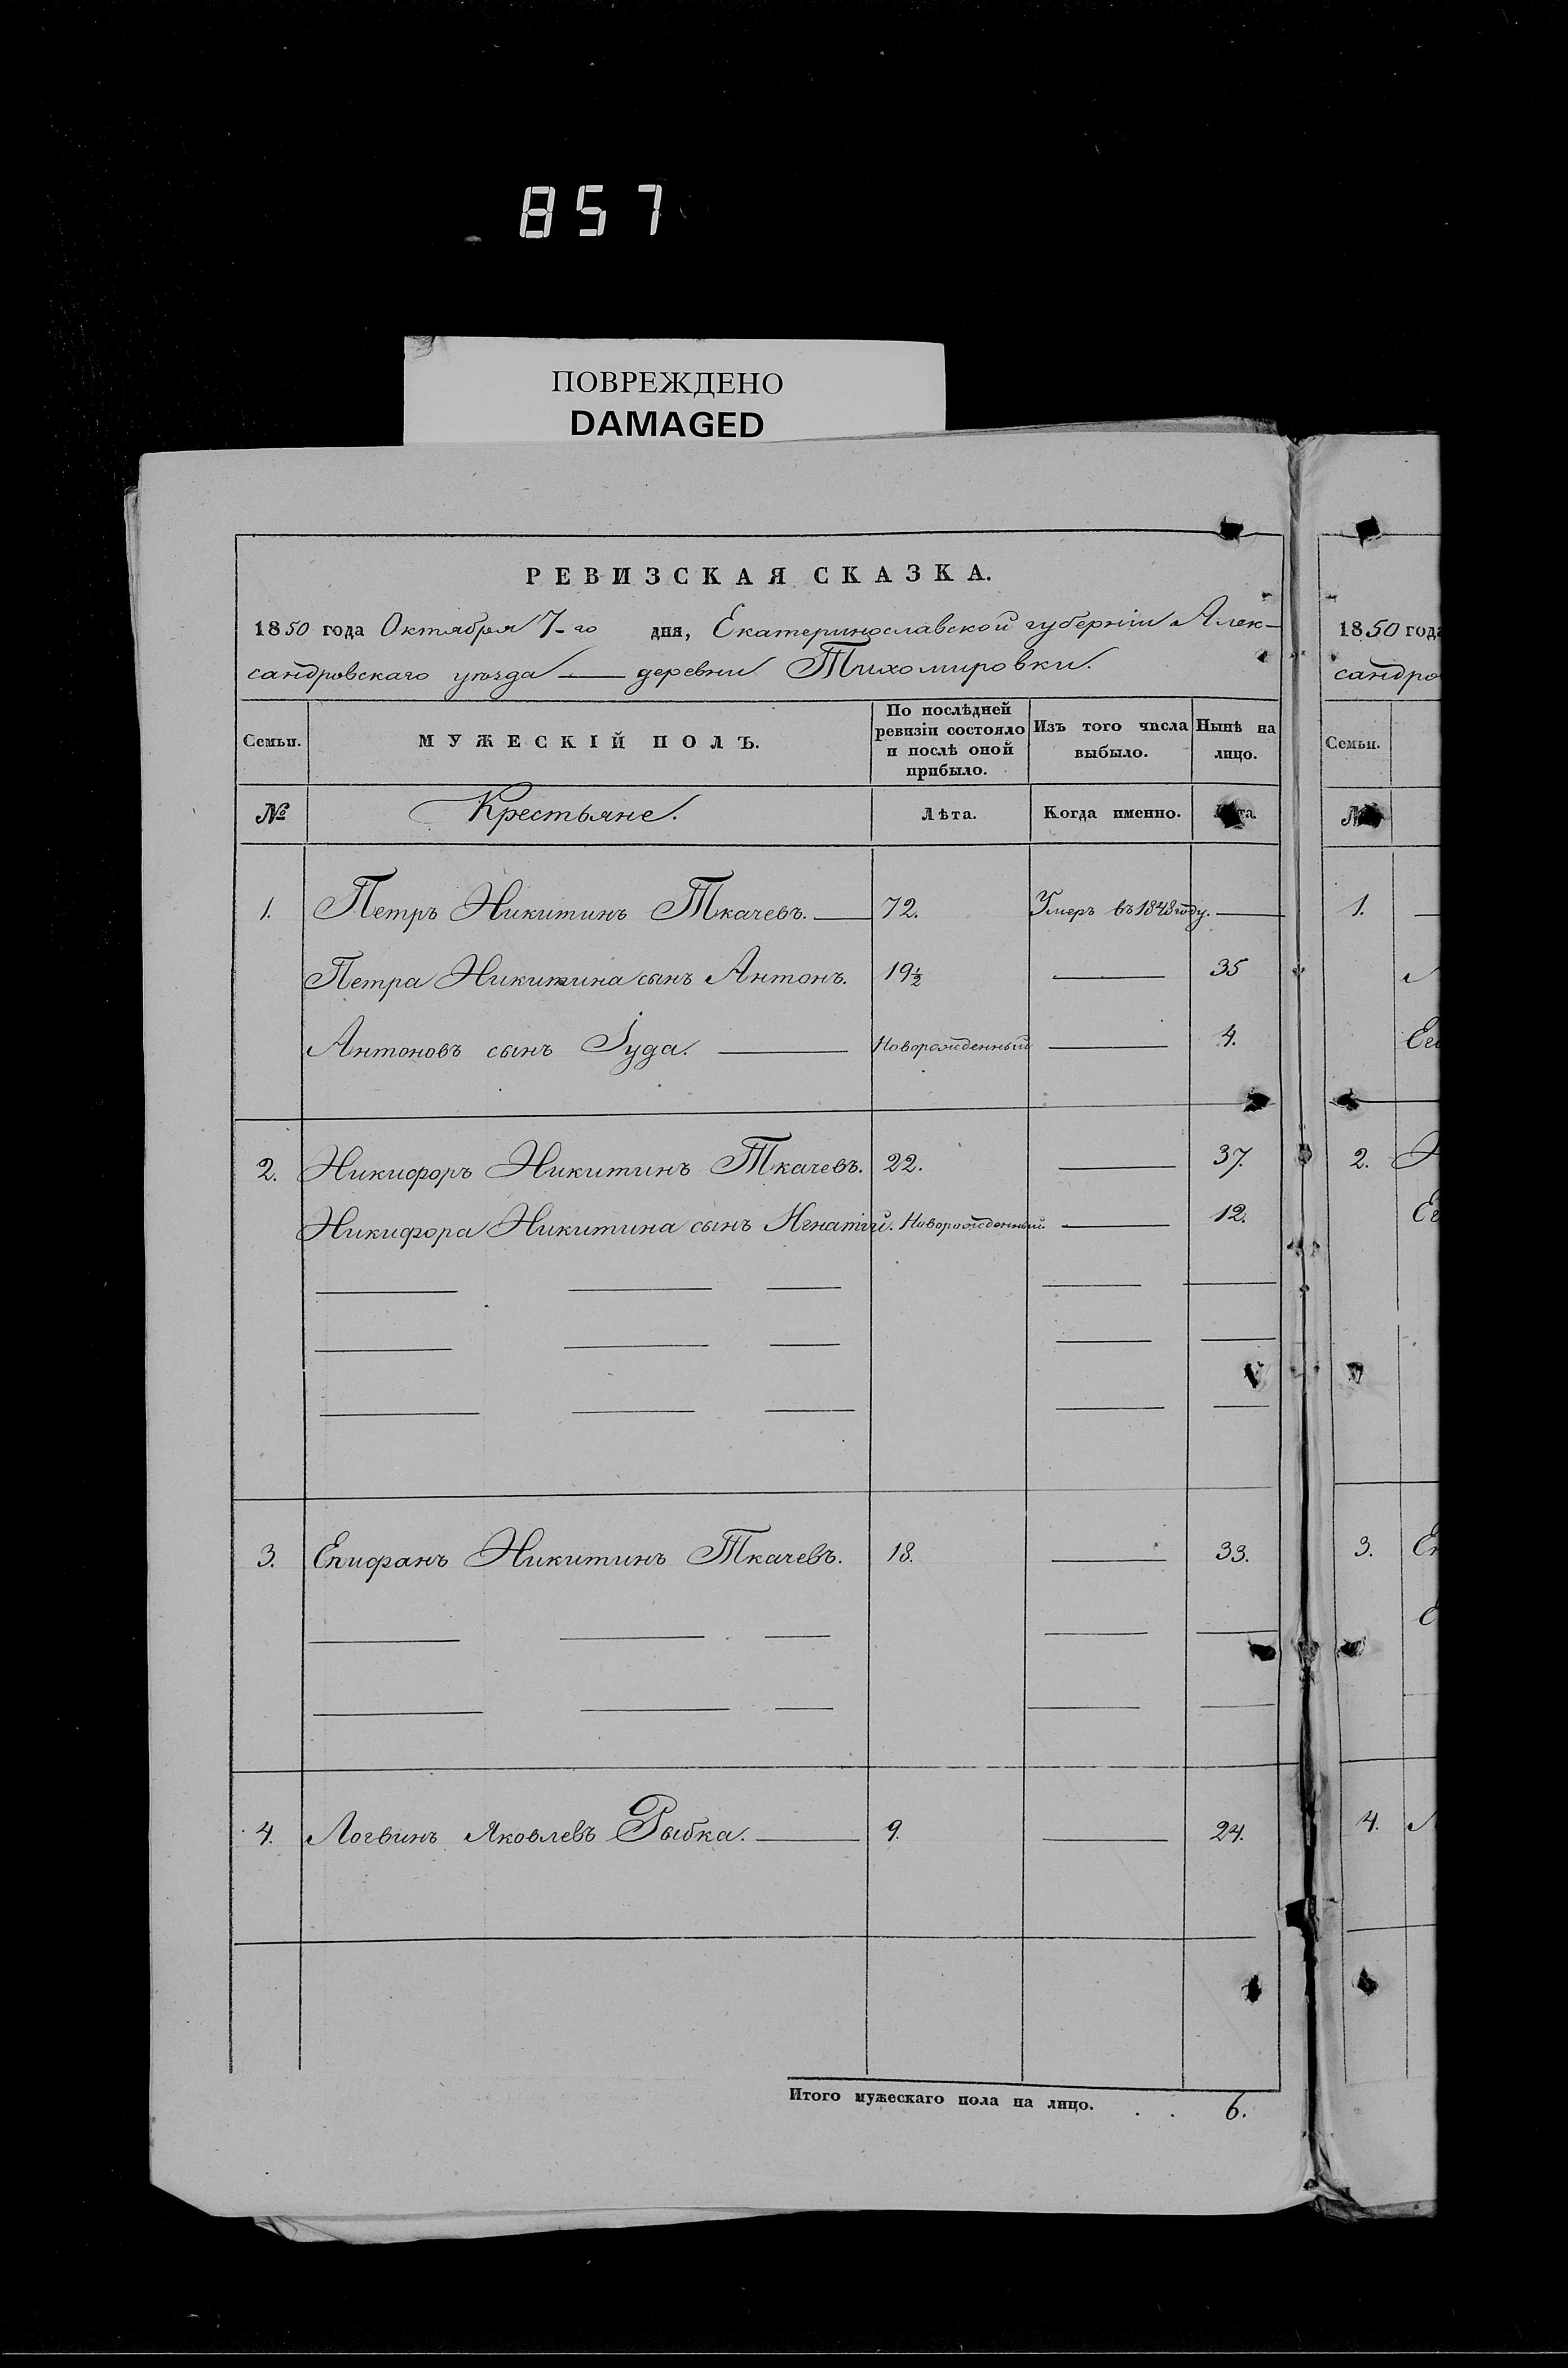 857
ПОВРЕЖДЕНО
DAMAGED
РЕВИЗСКАЯ СКАЗКА.
1850 года Октября 7-го дня, Екатеринославской губерніи Алек-
сандровскаго уѣзда — деревни Тихомировки.
Семьи. МУЖЕСКІЙ ПОЛЪ. По послѣдней ревизіи состояло и послѣ оной прибыло. Изъ того числа выбыло. Нынѣ на лицо.
№ Крестьяне. Лѣта. Когда именно.
1. Петръ Никитинъ Ткачевъ. — 72. Умеръ въ 1848 году. —
Петра Никитина сынъ Антонъ. 19½ — 35
Антоновъ сынъ Іуда. — Новорожденный — 4.
2. Никифоръ Никитинъ Ткачевъ. 22. — 37.
Никифора Никитина сынъ Игнатій. Новорожденный. — 12.
3. Епифанъ Никитинъ Ткачевъ. 18. — 33.
4. Логвинъ Яковлевъ Рыбка. — 9. — 24.
Итого мужескаго пола на лицо. . . 6.
1850 года
сандро
Семьи.
1.
2.
3.
4.